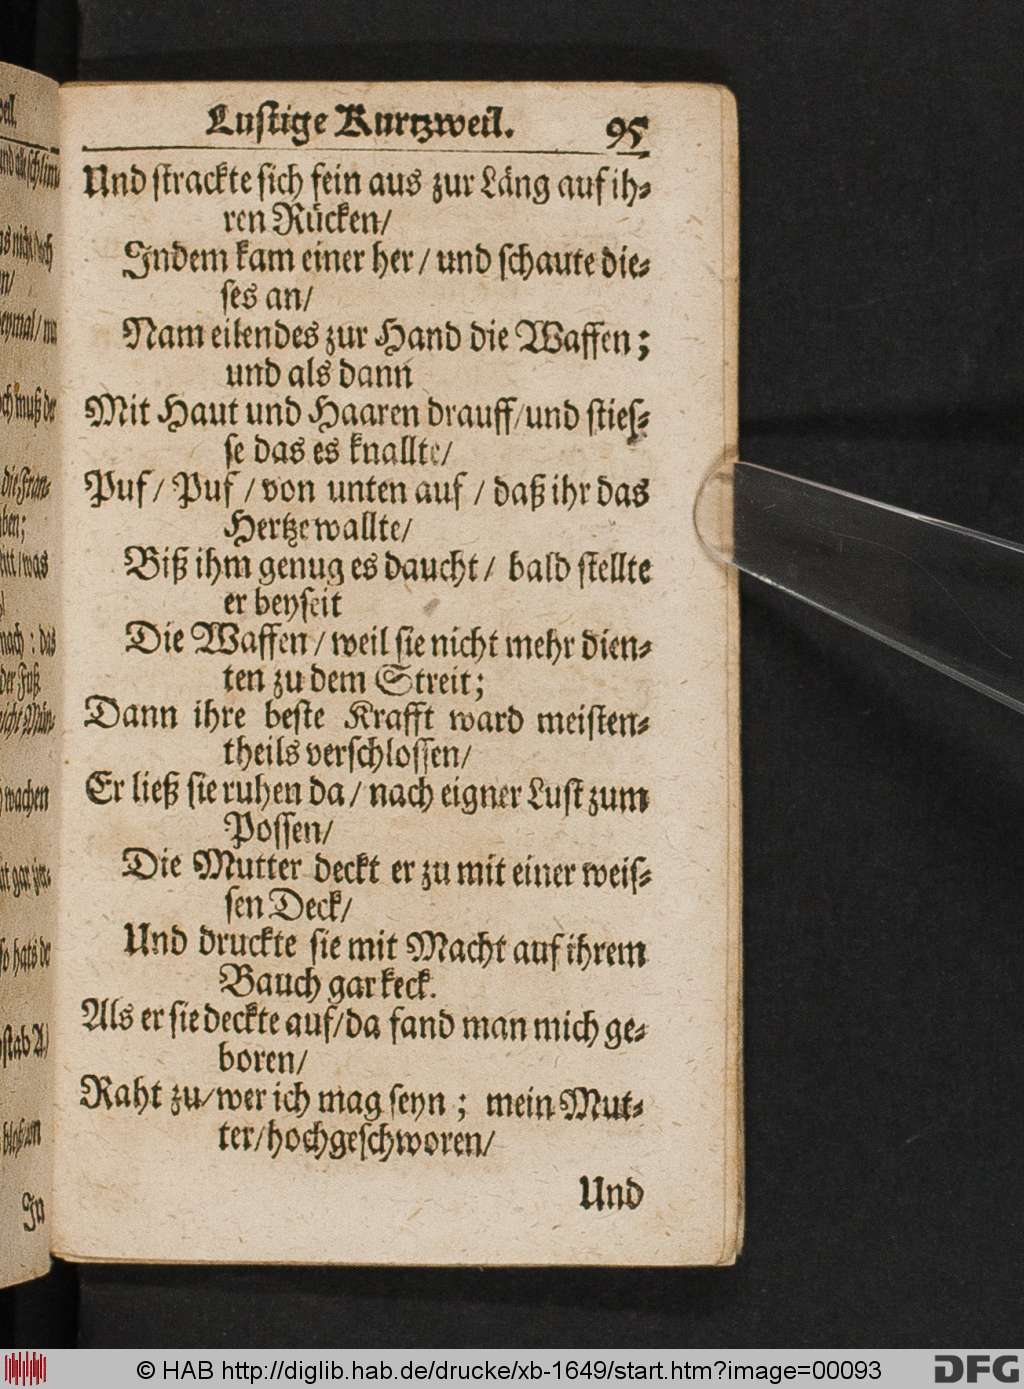 Lustige Kurtzweil. 95
Und strackte sich fein aus zur Läng auf ih⸗
ren Rücken/
Indem kam einer her / und schaute die⸗
ses an/
Nam eilendes zur Hand die Waffen;
und als dann
Mit Haut und Haaren drauff/und sties⸗
se das es knallte/
Puf / Puf / von unten auf / daß ihr das
Hertze wallte/
Biß ihm genug es daucht / bald stellte
er beyseit
Die Waffen / weil sie nicht mehr dien⸗
ten zu dem Streit;
Dann ihre beste Krafft ward meisten⸗
theils verschlossen/
Er ließ sie ruhen da / nach eigner Lust zum
Possen/
Die Mutter deckt er zu mit einer weis⸗
sen Deck/
Und druckte sie mit Macht auf ihrem
Bauch gar keck.
Als er sie deckte auf/da fand man mich ge⸗
boren/
Raht zu/wer ich mag seyn; mein Mut⸗
ter/hochgeschworen/
Und
© HAB http://diglib.hab.de/drucke/xb-1649/start.htm?image=00093
DFG